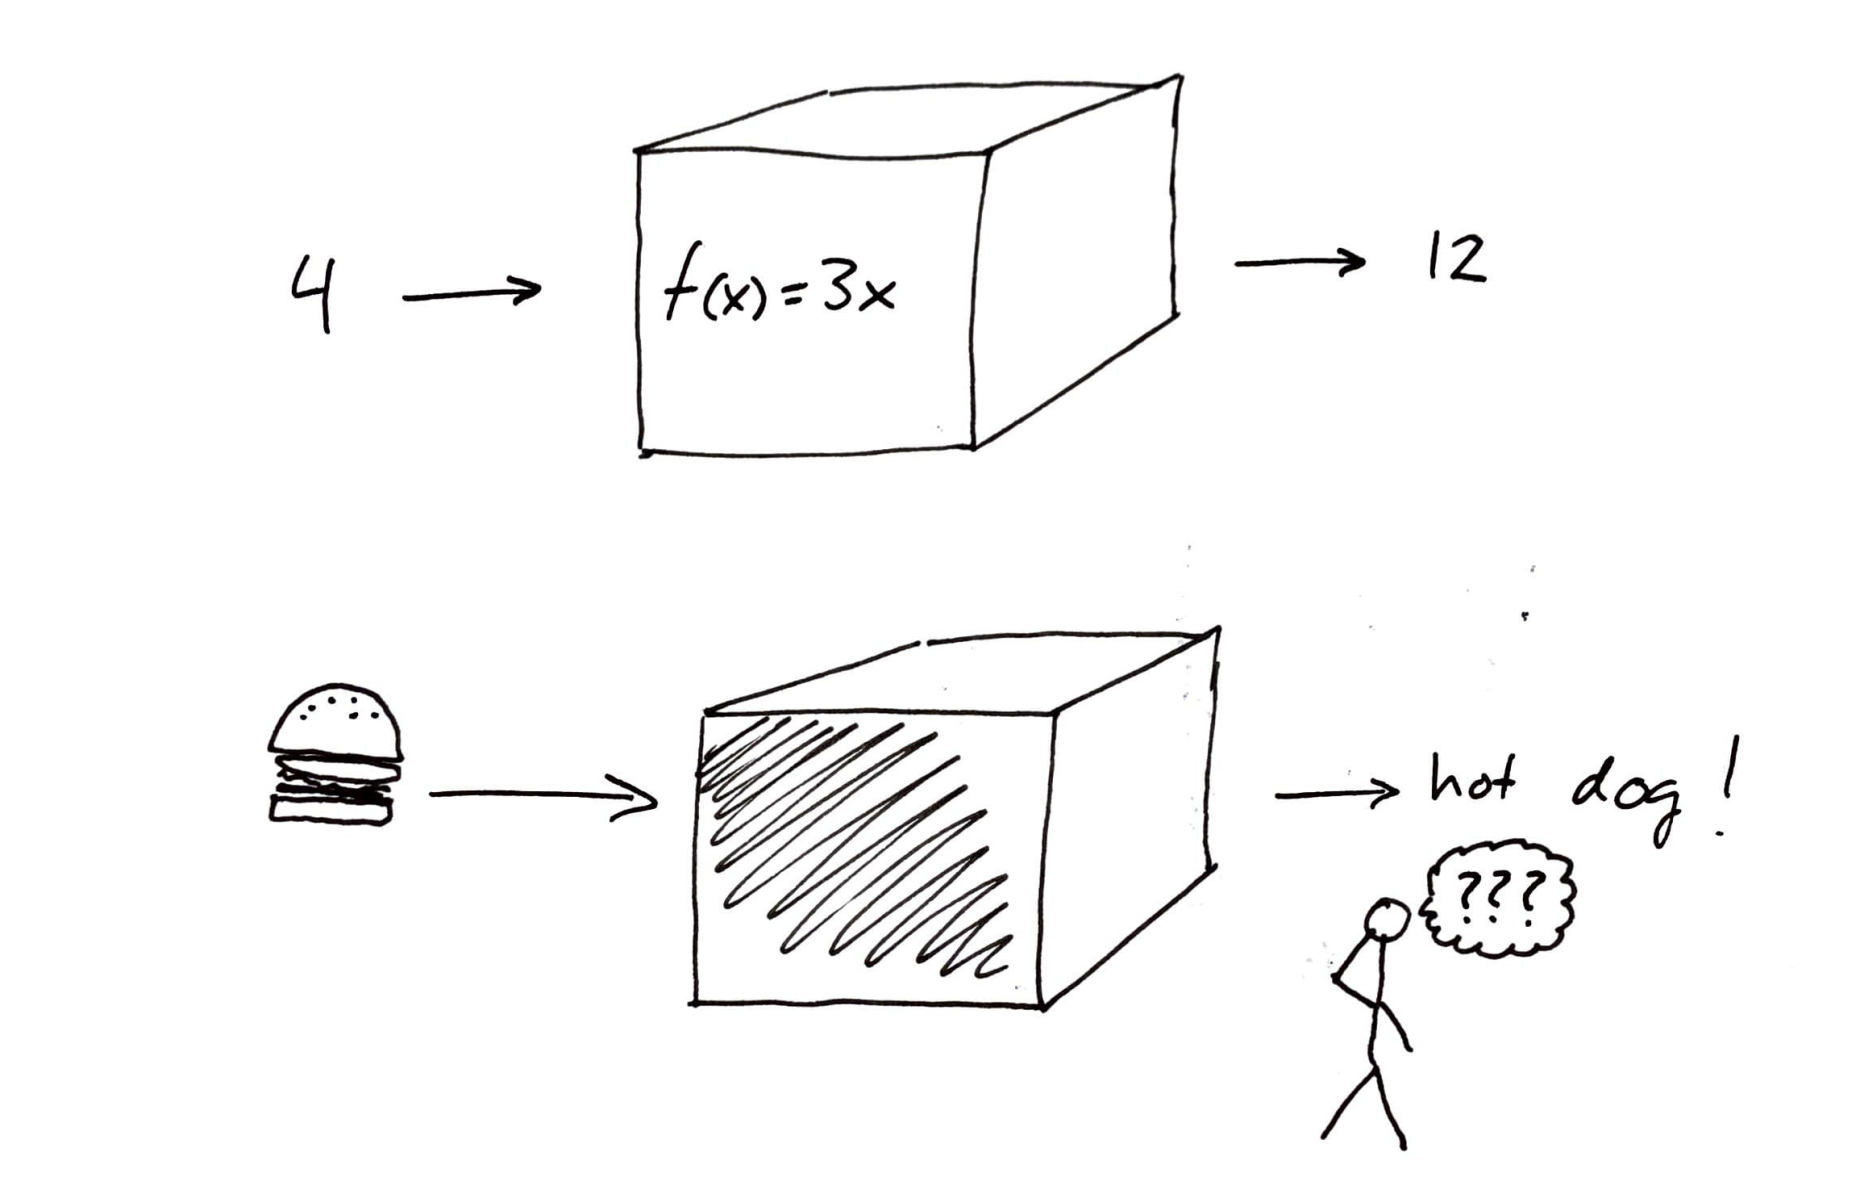 4 → f(x)=3x → 12
→ hot dog!
???